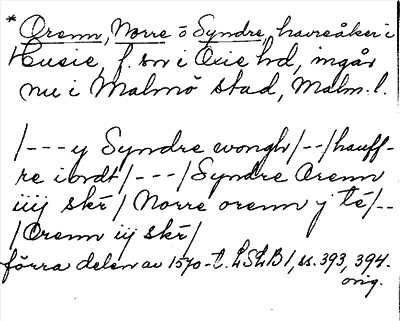 * Orenn, Norre o Syndre, havreåker i
Husie, f. sn i Oxie hd, ingår
nu i Malmö stad, Malm. l.
/---y Syndre wongh/--/hauff-
re i ordt/---/Syndre Orenn
iiij skr/ Norre orenn j té/--
/Orenn iij skr/
förra delen av 1570-t. LSLB 1, ss. 393, 394.
orig.